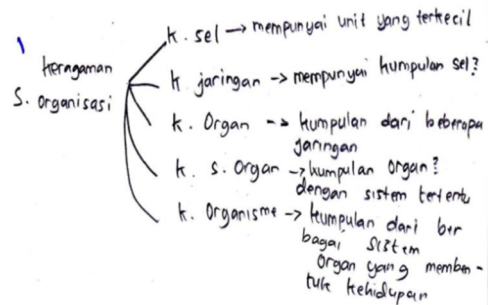 k. sel → mempunyai unit yang terkecil
keragaman
S. organisasi
k jaringan → mempunyai kumpulan sel?
k. Organ -> kumpulan dari beberapa
jaringan
k. s. Organ → kumpulan organ?
dengan sistem tertentu
k. Organisme → kumpulan dari ber
bagai sistem
organ yang memben-
tuk kehidupan